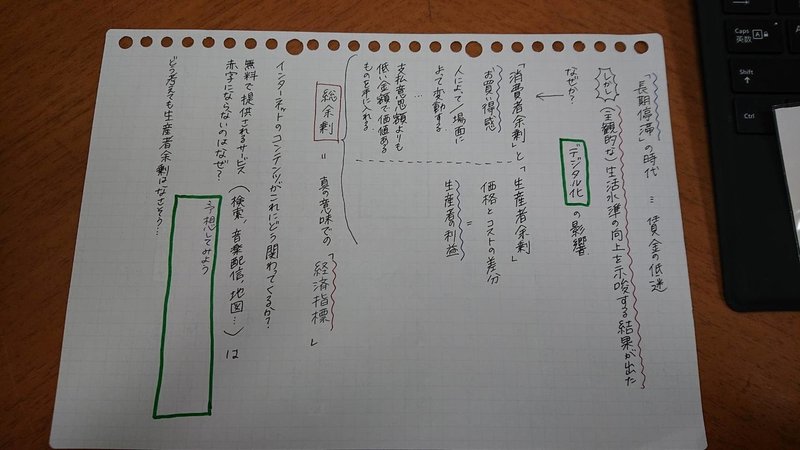 「長期停滞」の時代 = 賃金の低迷
しかし (主観的な)生活水準の向上を示唆する結果が出た
なぜか?
デジタル化 の影響
「消費者余剰」と「生産者余剰」
お買い得感
人によって/場面に
よって変動する
…
支払意思額よりも
低い金額で価値ある
ものを手に入れる
価格とコストの差分
=
生産者の利益
総余剰 = 真の意味での「経済指標」
インターネットのコンテンツがこれにどう関わってくるか?
無料で提供されるサービス (検索、音楽配信、地図…) は
赤字にならないのはなぜ?
どう考えても生産者余剰はなさそう…
予想してみよう
Caps
英数
A
Shift
Ctrl